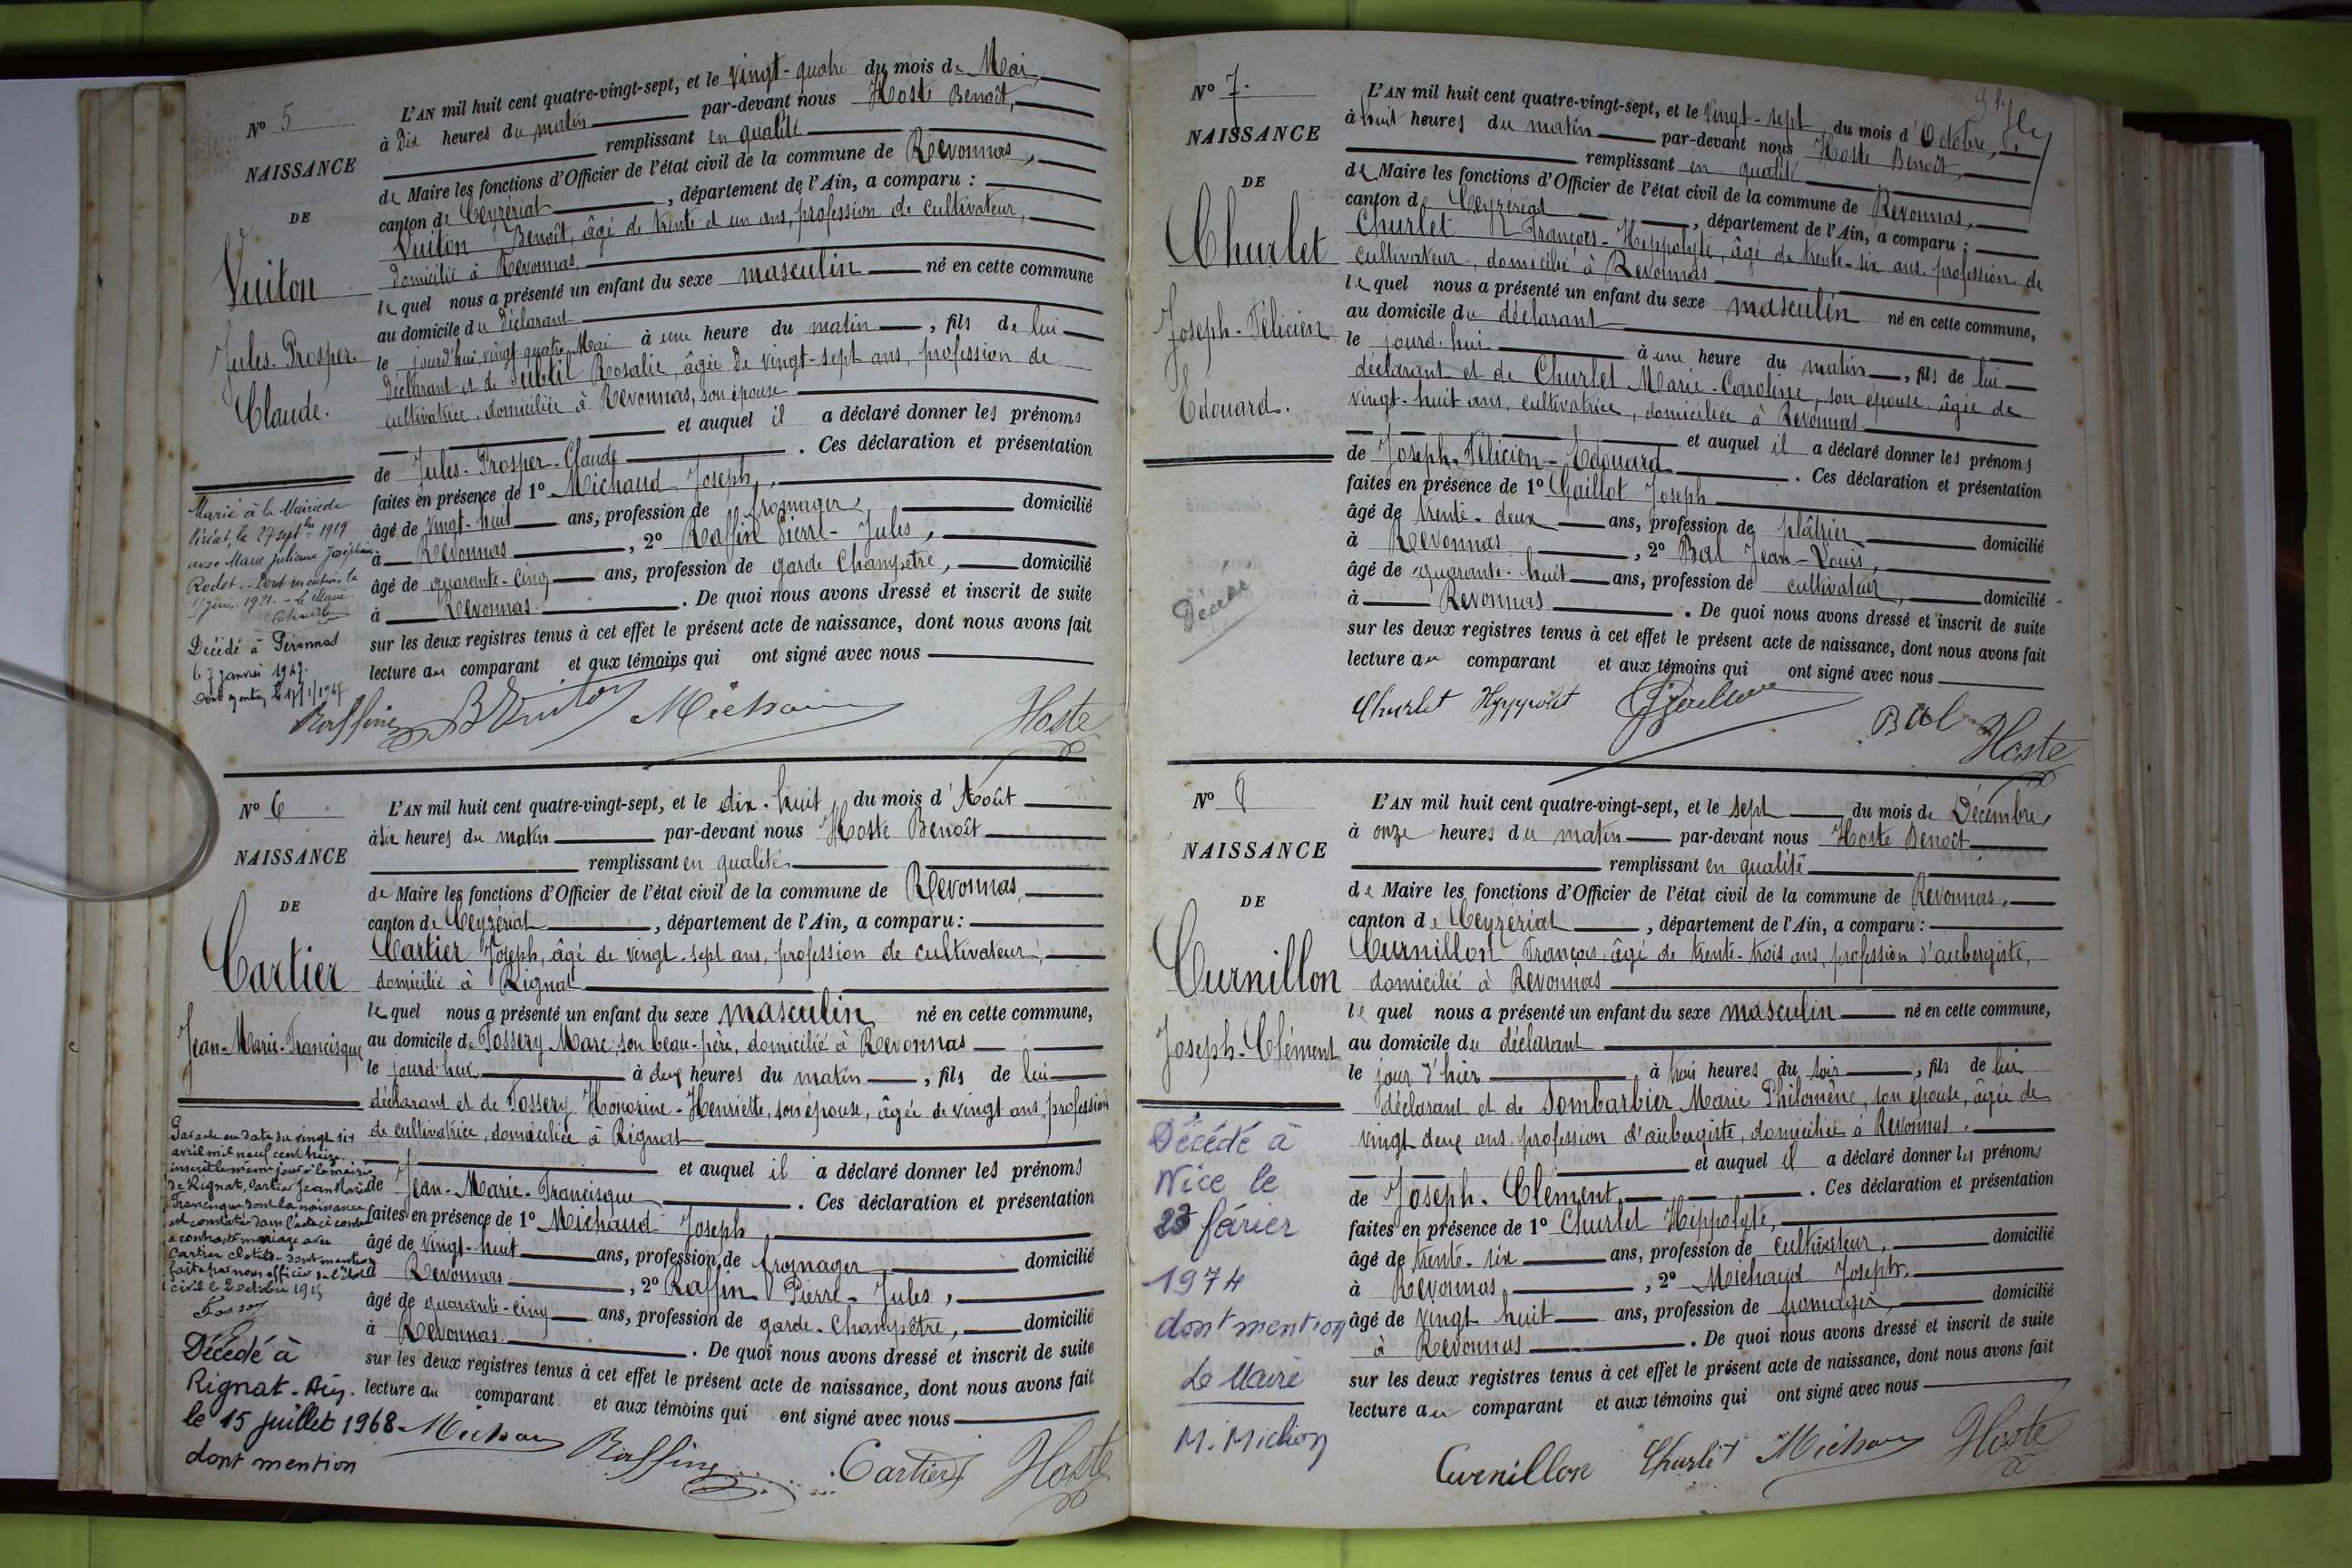 N° 5
NAISSANCE
DE
Vuiton
Jules-Prosper-
Claude.
Marié à la Mairie de
Viriat, le 27 sept bre 1919
avec Marie Julienne Joséphine
Rodet. - Dont mention le
11 juin 1921. - Le Maire.
Décédé à Péronnas
le 7 janvier 1947.
Dont mention le 17/1/1947
L'AN mil huit cent quatre-vingt-sept, et le vingt-quatre du mois de Mai,
à dix heures du matin par-devant nous Hoste Benoît,
remplissant en qualité
de Maire les fonctions d'Officier de l'état civil de la commune de Revonnas,
canton de Ceyzériat, département de l'Ain, a comparu :
Vuiton Benoît, âgé de trente et un ans, profession de cultivateur,
domicilié à Revonnas.
le quel nous a présenté un enfant du sexe masculin né en cette commune
au domicile du déclarant
le jourd'hui vingt-quatre Mai à une heure du matin, fils de lui
déclarant et de Subtil Rosalie, âgée de vingt-sept ans, profession de
cultivatrice, domiciliée à Revonnas, son épouse
et auquel il a déclaré donner les prénoms
de Jules-Prosper-Claude. Ces déclaration et présentation
faites en présence de 1° Michaud Joseph,
âgé de vingt-huit ans, profession de fromager, domicilié
à Revonnas, 2° Raffin Pierre-Jules,
âgé de quarante-cinq ans, profession de garde champêtre, domicilié
à Revonnas. De quoi nous avons dressé et inscrit de suite
sur les deux registres tenus à cet effet le présent acte de naissance, dont nous avons fait
lecture au comparant et aux témoins qui ont signé avec nous
Raffin B Vuiton Michaud Hoste
N° 6
NAISSANCE
DE
Cartier
Jean-Marie-Francisque
Par acte en date du vingt six
avril mil neuf cent treize,
inscrit le même jour à la mairie
de Rignat, Cartier Jean Marie
Francisque dont la naissance
est constatée dans l'acte ci-contre
a contracté mariage avec
Cartier Clotilde dont mention
faite par nous officier de l'état
civil le 2 octobre 1915
Décédé à
Rignat-Ain.
le 15 juillet 1968
dont mention
L'AN mil huit cent quatre-vingt-sept, et le dix-huit du mois d'Août
à six heures du matin par-devant nous Hoste Benoît
remplissant en qualité
de Maire les fonctions d'Officier de l'état civil de la commune de Revonnas,
canton de Ceyzériat, département de l'Ain, a comparu :
Cartier Joseph, âgé de vingt-sept ans, profession de cultivateur,
domicilié à Rignat
le quel nous a présenté un enfant du sexe masculin né en cette commune,
au domicile de Fossery Marc son beau-père, domicilié à Revonnas
le jourd'hui à deux heures du matin, fils de lui
déclarant et de Fossery Honorine-Henriette, son épouse, âgée de vingt ans, profession
de cultivatrice, domiciliée à Rignat
et auquel il a déclaré donner les prénoms
de Jean-Marie-Francisque. Ces déclaration et présentation
faites en présence de 1° Michaud Joseph
âgé de vingt-huit ans, profession de fromager domicilié
à Revonnas, 2° Raffin Pierre-Jules,
âgé de quarante-cinq ans, profession de garde-champêtre, domicilié
à Revonnas. De quoi nous avons dressé et inscrit de suite
sur les deux registres tenus à cet effet le présent acte de naissance, dont nous avons fait
lecture au comparant et aux témoins qui ont signé avec nous
Michaud Raffin Cartier Hoste
N° 7.
NAISSANCE
DE
Churlet
Joseph-Félicien
Edouard.
Décédé
L'AN mil huit cent quatre-vingt-sept, et le vingt-sept du mois d'Octobre,
à huit heures du matin par-devant nous Hoste Benoît,
remplissant en qualité
de Maire les fonctions d'Officier de l'état civil de la commune de Revonnas,
canton de Ceyzériat, département de l'Ain, a comparu :
Churlet François-Hippolyte, âgé de trente-six ans, profession de
cultivateur, domicilié à Revonnas
le quel nous a présenté un enfant du sexe masculin né en cette commune,
au domicile du déclarant
le jourd'hui à une heure du matin, fils de lui
déclarant et de Churlet Marie-Caroline, son épouse âgée de
vingt-huit ans, cultivatrice, domiciliée à Revonnas
et auquel il a déclaré donner les prénoms
de Joseph-Félicien-Edouard. Ces déclaration et présentation
faites en présence de 1° Gaillot Joseph
âgé de trente-deux ans, profession de plâtrier domicilié
à Revonnas, 2° Bal Jean-Louis,
âgé de quarante-huit ans, profession de cultivateur, domicilié
à Revonnas. De quoi nous avons dressé et inscrit de suite
sur les deux registres tenus à cet effet le présent acte de naissance, dont nous avons fait
lecture au comparant et aux témoins qui ont signé avec nous
Churlet Hyppolit Bal Hoste
N° 8
NAISSANCE
DE
Curnillon
Joseph-Clément
Décédé à
Nice le
23 février
1974
dont mention
Le Maire
M. Michon
L'AN mil huit cent quatre-vingt-sept, et le sept du mois de Décembre,
à onze heures du matin par-devant nous Hoste Benoît
remplissant en qualité
de Maire les fonctions d'Officier de l'état civil de la commune de Revonnas,
canton de Ceyzériat, département de l'Ain, a comparu :
Curnillon François, âgé de trente-trois ans, profession d'aubergiste,
domicilié à Revonnas
le quel nous a présenté un enfant du sexe masculin né en cette commune,
au domicile du déclarant
le jour d'hier à trois heures du soir, fils de lui
déclarant et de Sombarbier Marie Philomène, son épouse, âgée de
vingt deux ans, profession d'aubergiste, domiciliée à Revonnas,
et auquel il a déclaré donner les prénoms
de Joseph-Clément. Ces déclaration et présentation
faites en présence de 1° Churlet Hippolyte,
âgé de trente-six ans, profession de cultivateur, domicilié
à Revonnas, 2° Michaud Joseph,
âgé de vingt huit ans, profession de fromager, domicilié
à Revonnas. De quoi nous avons dressé et inscrit de suite
sur les deux registres tenus à cet effet le présent acte de naissance, dont nous avons fait
lecture au comparant et aux témoins qui ont signé avec nous
Curnillon Churlet Michaud Hoste